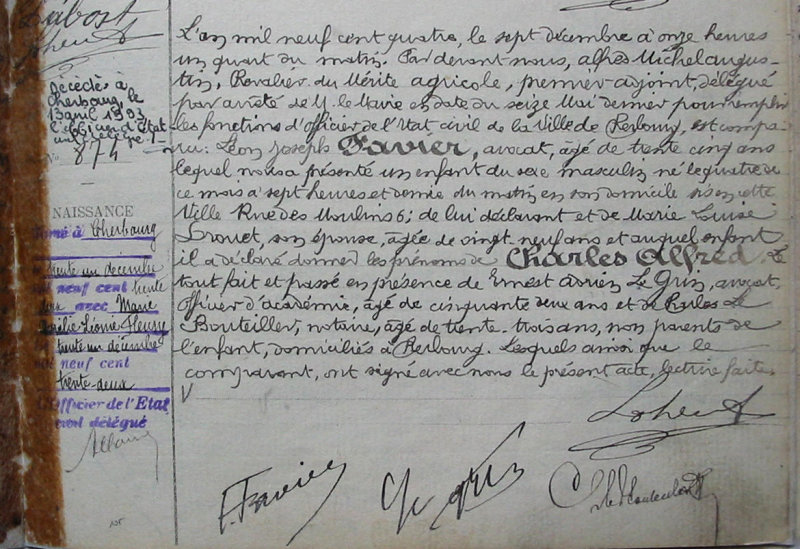 décédé à
Cherbourg, le
13 avril 1993
L'officier d'Etat
N° 874
NAISSANCE
Cherbourg
trente un décembre
neuf cent trente
avec Marie
Fleury
trente un décembre
neuf cent
trente-deux
L'Officier de l'Etat
civil délégué
L'an mil neuf cent quatre, le sept décembre à onze heures
un quart du matin. Par devant nous, Alfred Michel augus-
tin, Chevalier du Mérite agricole, premier adjoint, délégué
par arrêté de M. le Maire en date du seize Mai dernier pour remplir
les fonctions d'Officier de l'Etat civil de la Ville de Cherbourg, est compa-
ru: Léon Joseph Favier, avocat, âgé de trente cinq ans
lequel nous a présenté un enfant du sexe masculin né le quatre de
ce mois à sept heures et demie du matin en son domicile sis en cette
Ville Rue des Moulins 6; de lui déclarant et de Marie Louise
Drouet, son épouse, âgée de vingt-neuf ans et auquel enfant
il a déclaré donner les prénoms de Charles Alfred. Le
tout fait et passé en présence de Ernest Adrien Le Grin, avocat,
Officier d'académie, âgé de cinquante deux ans et de Jules Le
Bouteiller, notaire, âgé de trente-trois ans, non parents de
l'enfant, domiciliés à Cherbourg. Lesquels ainsi que le
comparant, ont signé avec nous le présent acte, lecture faite.
L. Favier